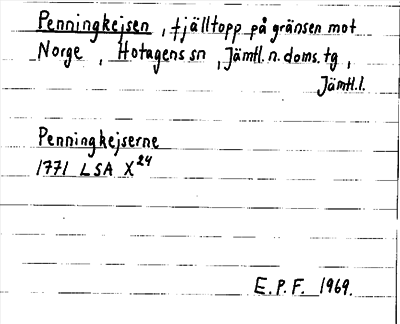 Penningkejsen, fjälltopp på gränsen mot
Norge, Hotagens sn, Jämtl. n. doms. tg,
Jämtl. l.
Penningkejserne
1771 LSA X24
E.P.F. 1969.